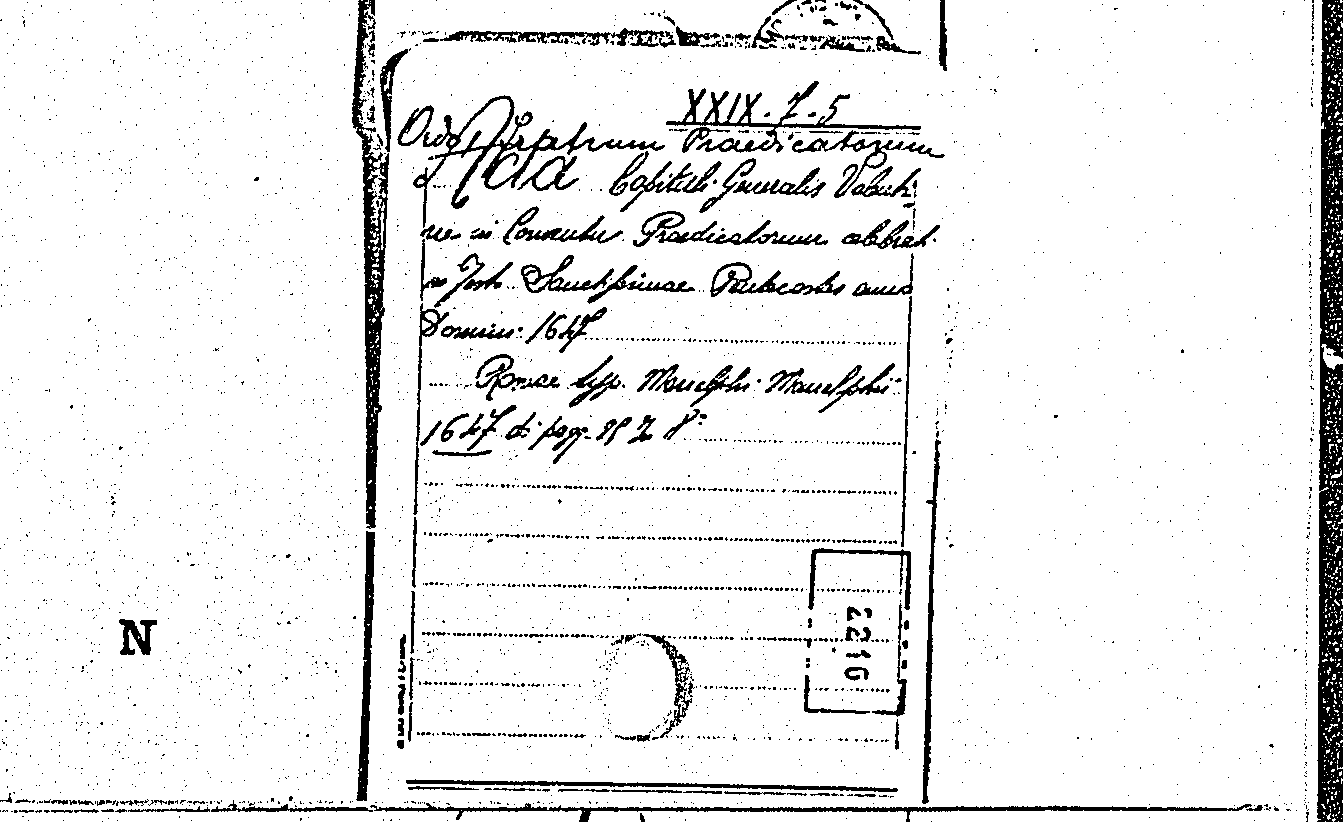 XXIX.7.5
Ordo Fratrum Praedicatorum
Acta Capituli Generalis Valenti-
nae in Conventu Praedicatorum celebrati
in Festo Sanctissimae Pentecostes anno
Domini 1647
Romae typ. Manelphi Manelphii
1647 di pagg. 8°
2216
N